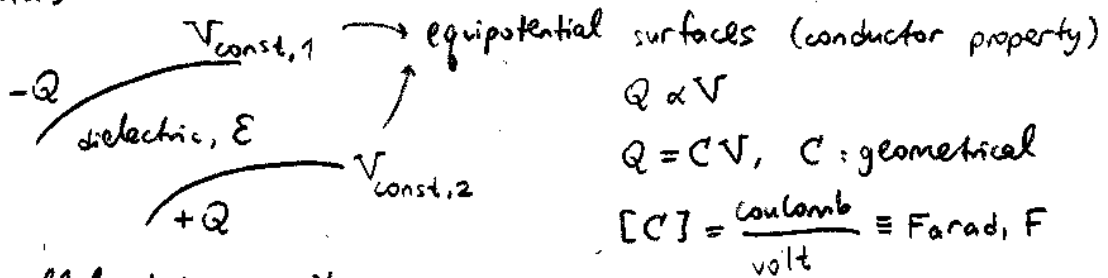 V_const,1 → equipotential surfaces (conductor property)
-Q
dielectric, ε
V_const,2
+Q
Q ∝ V
Q = CV, C : geometrical
[C] = coulomb/volt ≡ Farad, F